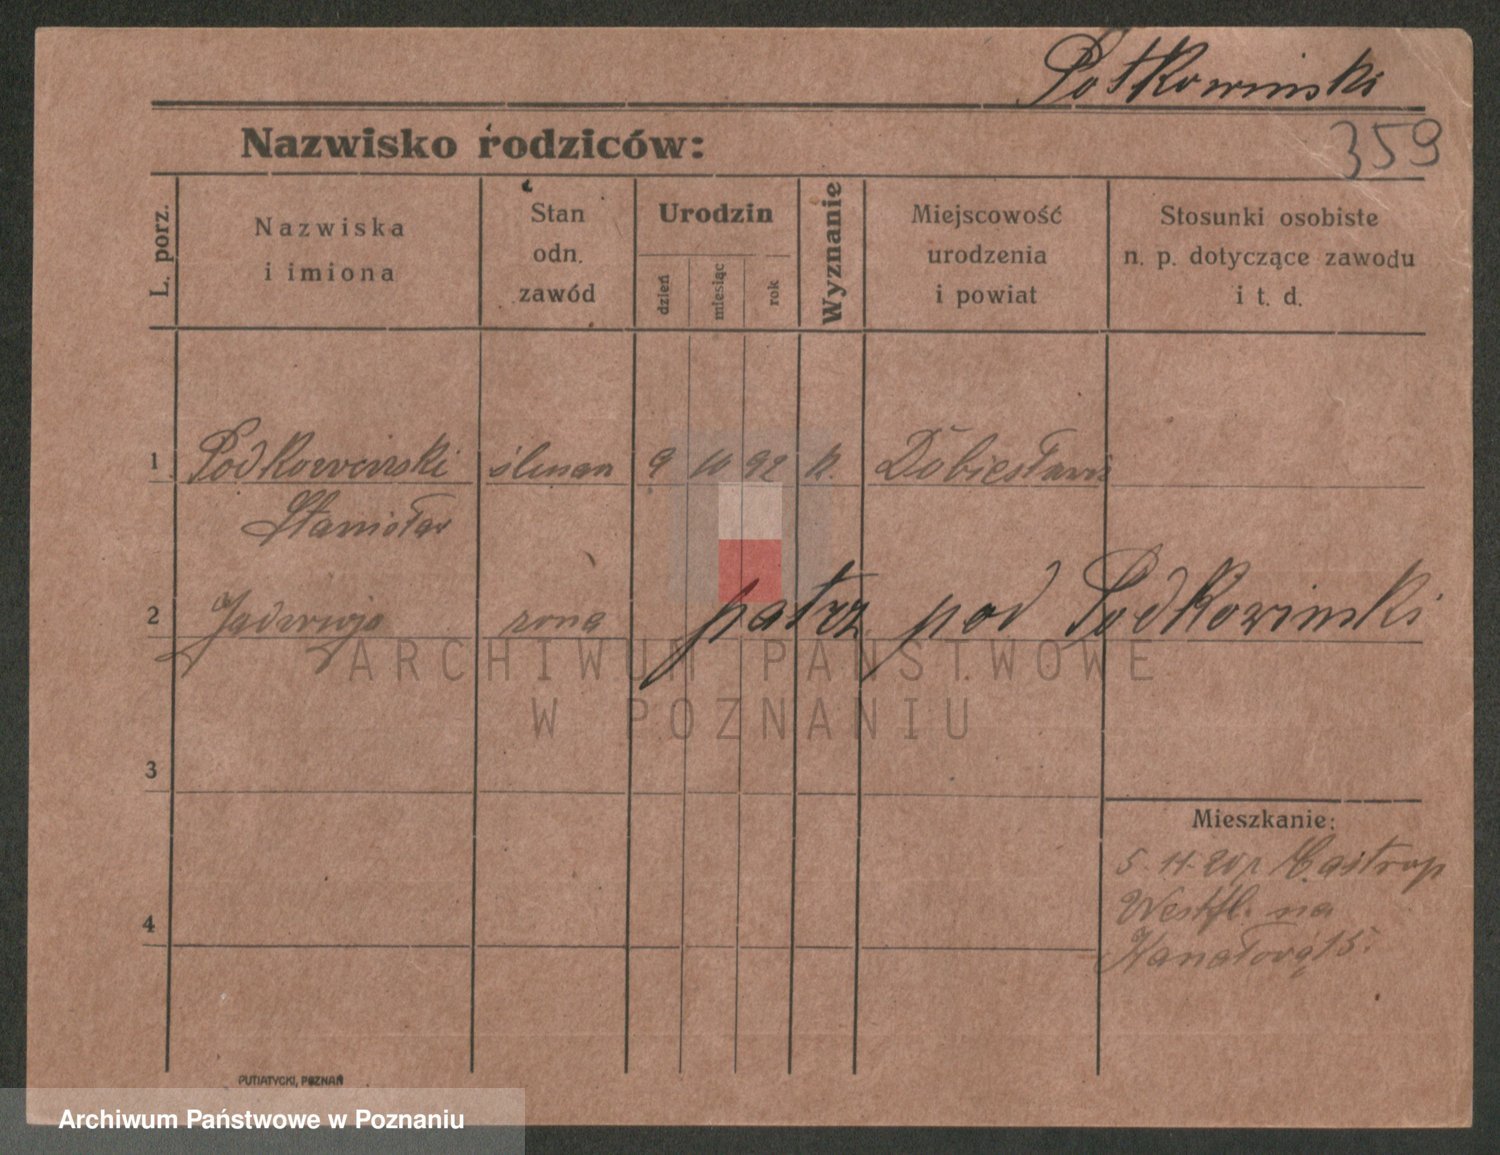 Potkowinski
359
Nazwisko rodziców:
L. porz.
Nazwiska
i imiona
Stan
odn.
zawód
Urodzin
dzień
miesiąc
rok
Wyznanie
Miejscowość
urodzenia
i powiat
Stosunki osobiste
n. p. dotyczące zawodu
i t. d.
1 9 10 92 k.
Stanisław
2 Jadwiga żona patrz pod Podkowinski
3
Mieszkanie:
5-11-20 Castrop
Westfl. na
4
Kanałową 15.
ARCHIWUM PAŃSTWOWE
W POZNANIU
PUTIATYCKI, POZNAŃ
Archiwum Państwowe w Poznaniu